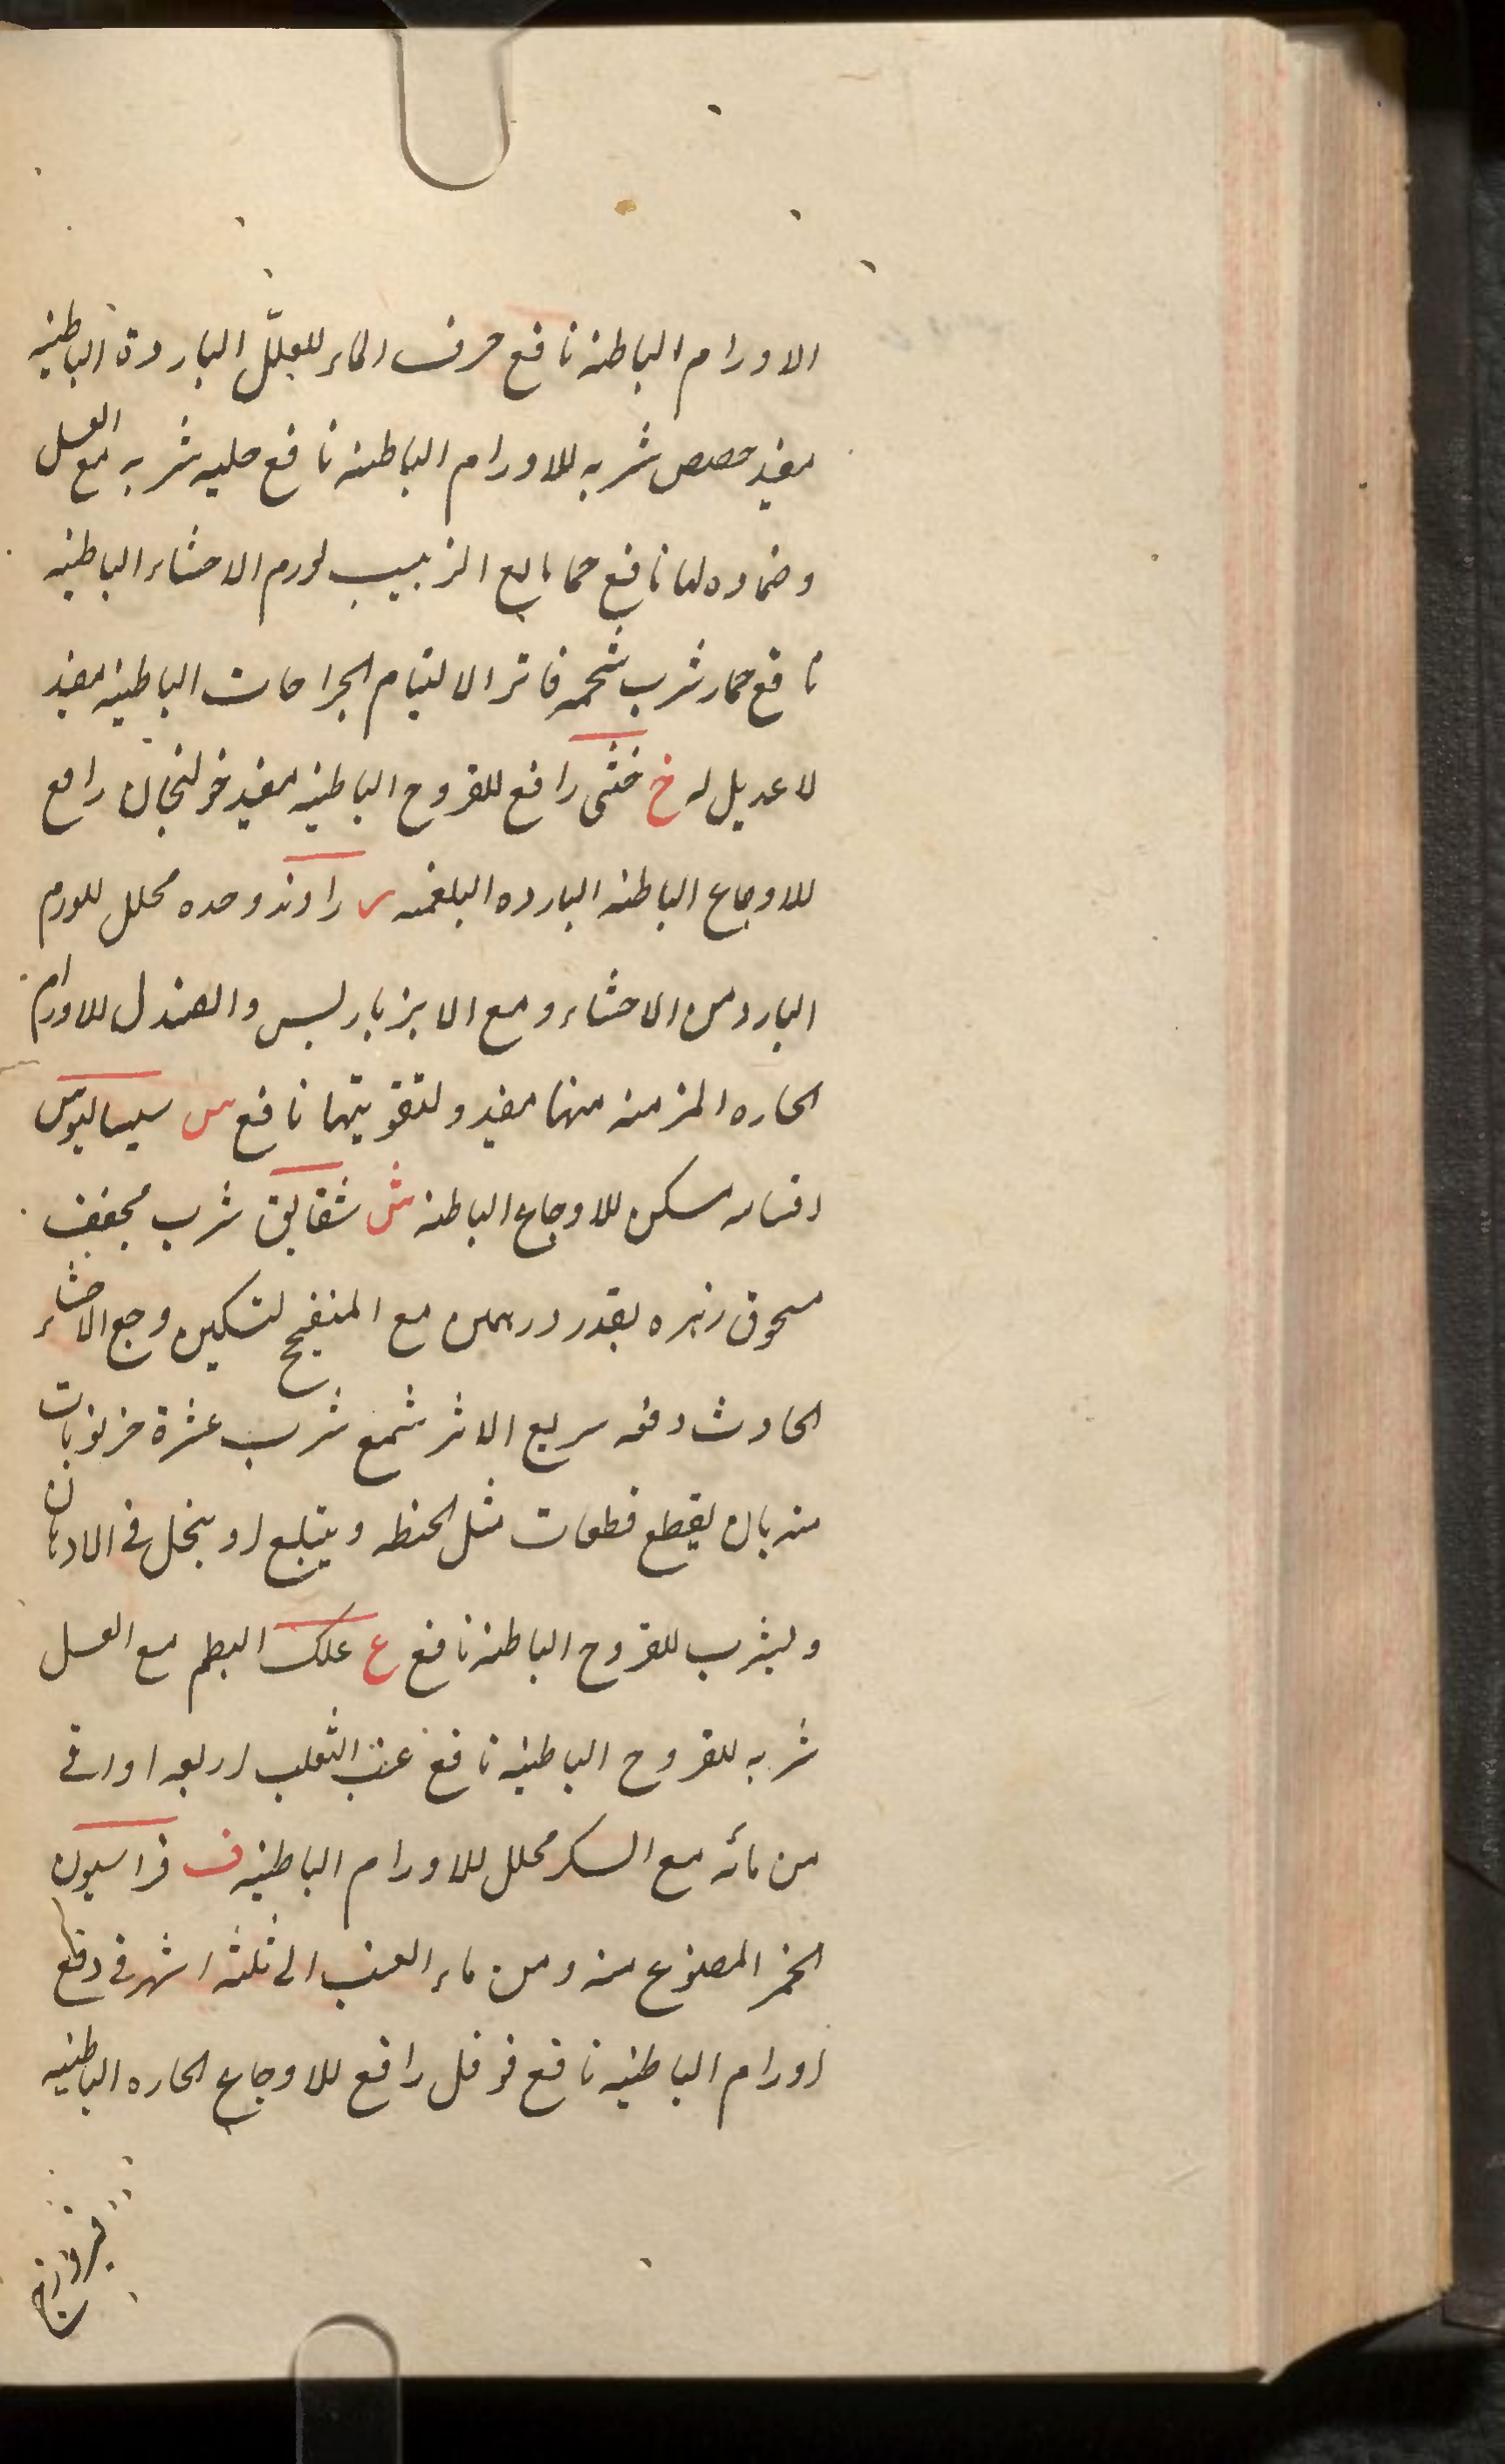 الاورام الباطنه نافع حرف الماء للعلّل الباردة الباطنيه
مفيد حضض شربه للاورام الباطنه نافع حلبه شربه مع العسل
وضماده لها نافع حماما مع الزبيب لورم الاحشاء الباطنيه
نافع حمار شرب شحمه فاترا لالتيام الجراحات الباطنيه مفيد
لا عديل له خ خنثى رافع للقروح الباطنيه مفيد خولنجان رافع
للاوجاع الباطنه البارده البلغميه ر راوند وحده محلل للورم
البارد من الاحشاء و مع الانبرباريس والصندل للاورام
الحاره المزمنه منها مفيد ولتقويتها نافع س سيساليوس
مسكن للاوجاع الباطنه ش شقايق شرب مجفف
مسحوق زهره بقدر درهمين مع لتسكين وجع الاحشاء
الحادث دفعه سريع الاثر شمع شرب عشرة خرنوبات
منه بان يقطع قطعات مثل الحنطه ويبتلع او ينحل فى الادهان
ويشرب للقروح الباطنه نافع ع علك البطم مع العسل
شربه للقروح الباطنيه نافع عنب الثعلب اربعه اواقى
من مائه مع السكر محلل للاورام الباطنيه ف فراسيون
الخمر المصنوع منه ومن ماء العنب الى ثلثه اشهر فى دفع
اورام الباطنيه نافع فوفل رافع للاوجاع الحاره الباطنيه
فيروزج